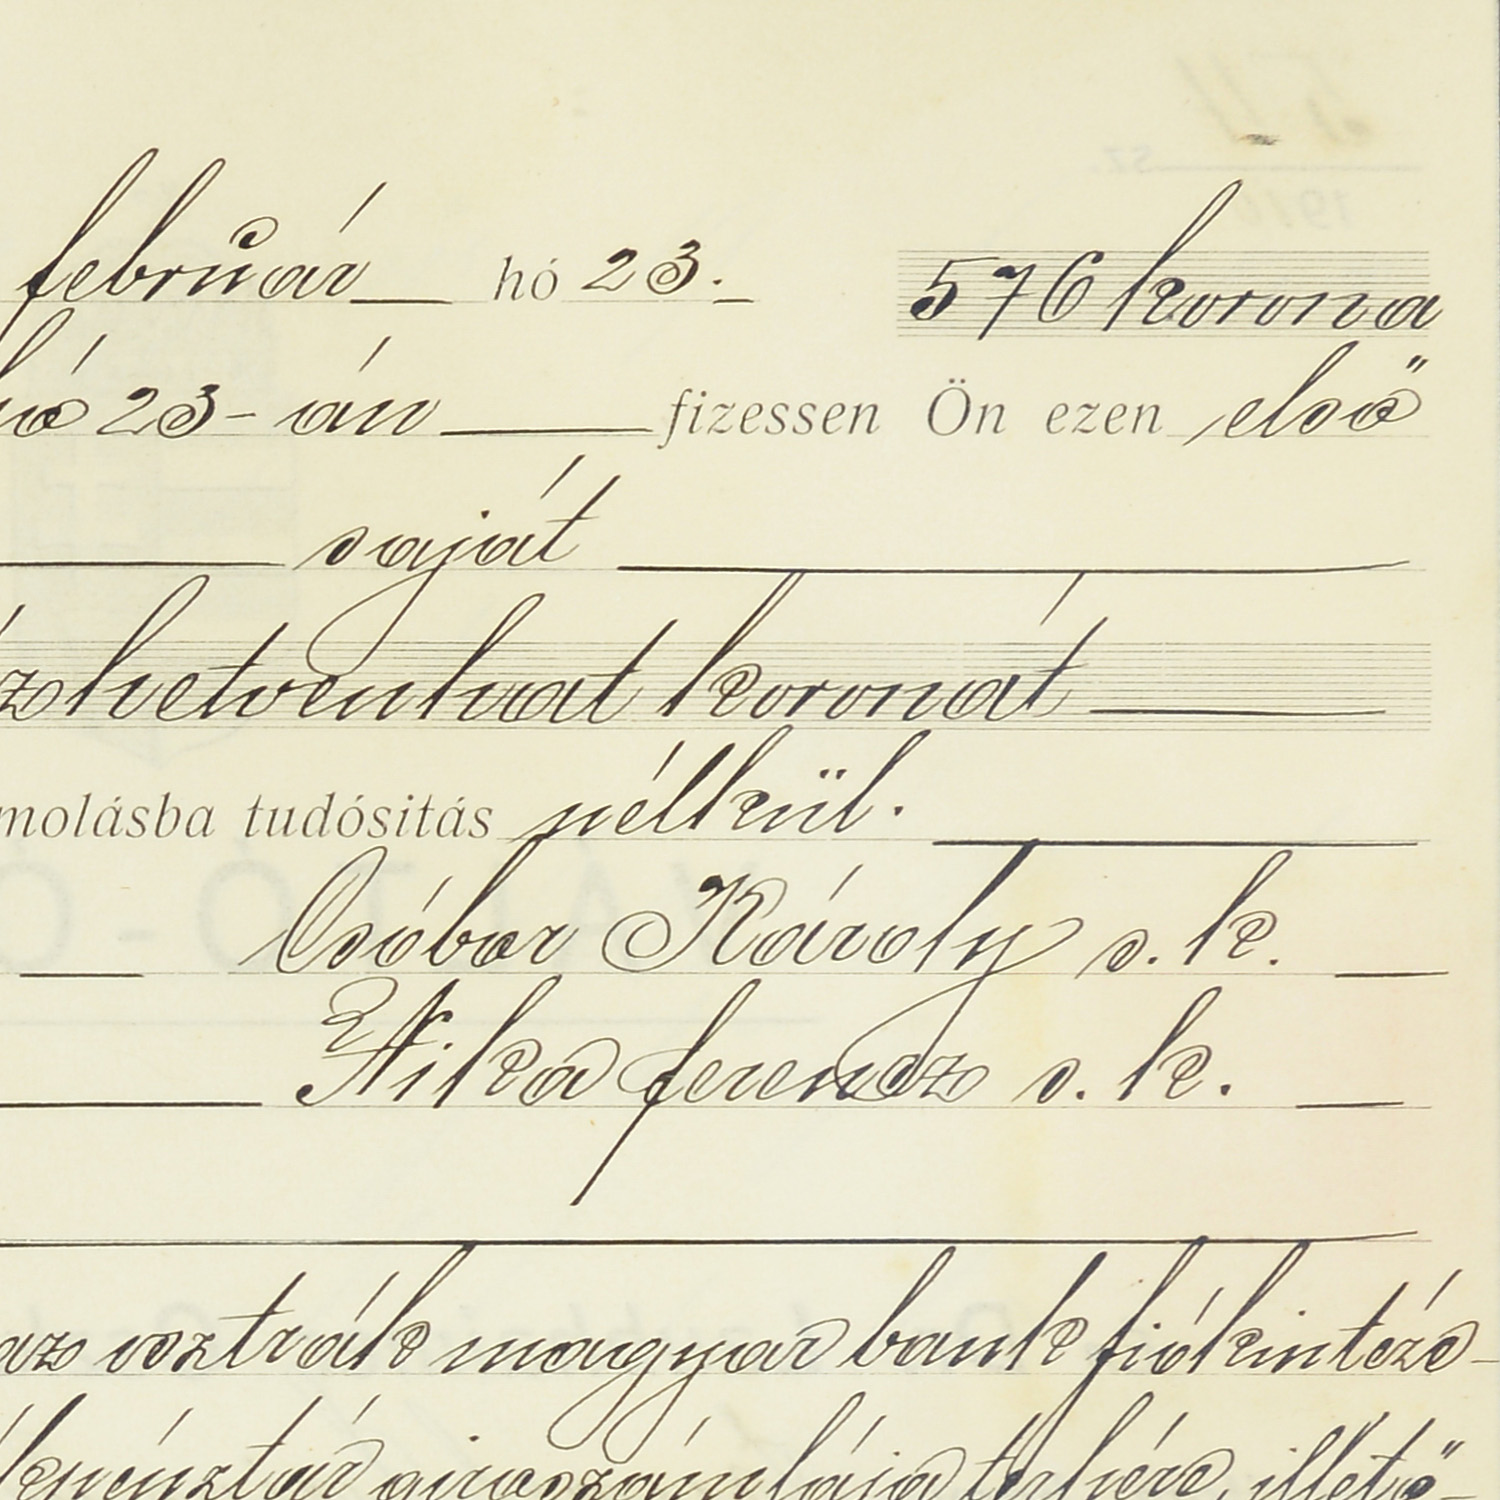 február hó 23. 576 korona
hó 23-án fizessen Ön ezen első
saját
zhetvenhat koronát
molásba tudósitás nélkül.
Csóbor Károly s. k.
Nika ferencz s. k.
az osztrák magyar bank fiókintéze-
pénztár giroszámlája terhére, illető-